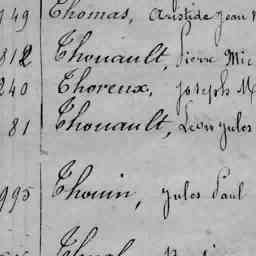 149 Thomas, Aristide Jean
812 Thouault, Pierre Mic
240 Thoreux, Joseph M
81 Thouault, Léon Jules
995 Thouin, Jules Paul